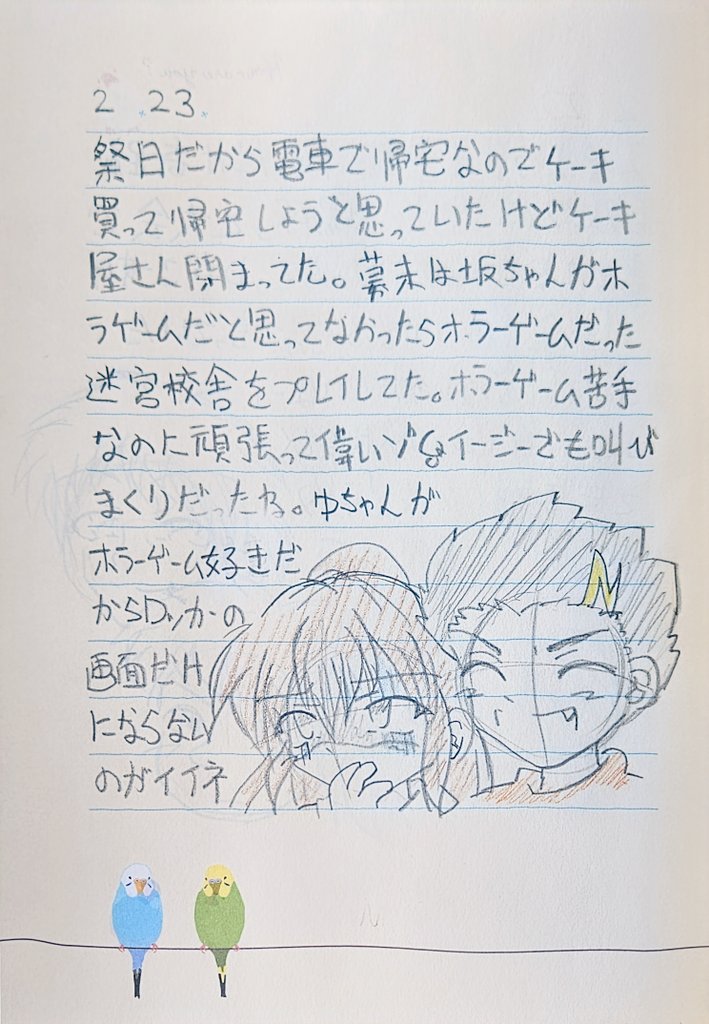 2 23.
祭日だから電車で帰宅なのでケーキ
買って帰宅しようと思っていたけどケーキ
屋さん閉まってた。幕末は坂ちゃんがホ
ラゲームだと思ってなかったらホラーゲームだった
迷宮校舎をプレイしてた。ホラーゲーム苦手
なのに頑張って偉いゾ イージーでも叫び
まくりだったね。ゆちゃんが
ホラーゲーム好きだ
からロッカーの
画面だけ
にならない
のがイイネ
N